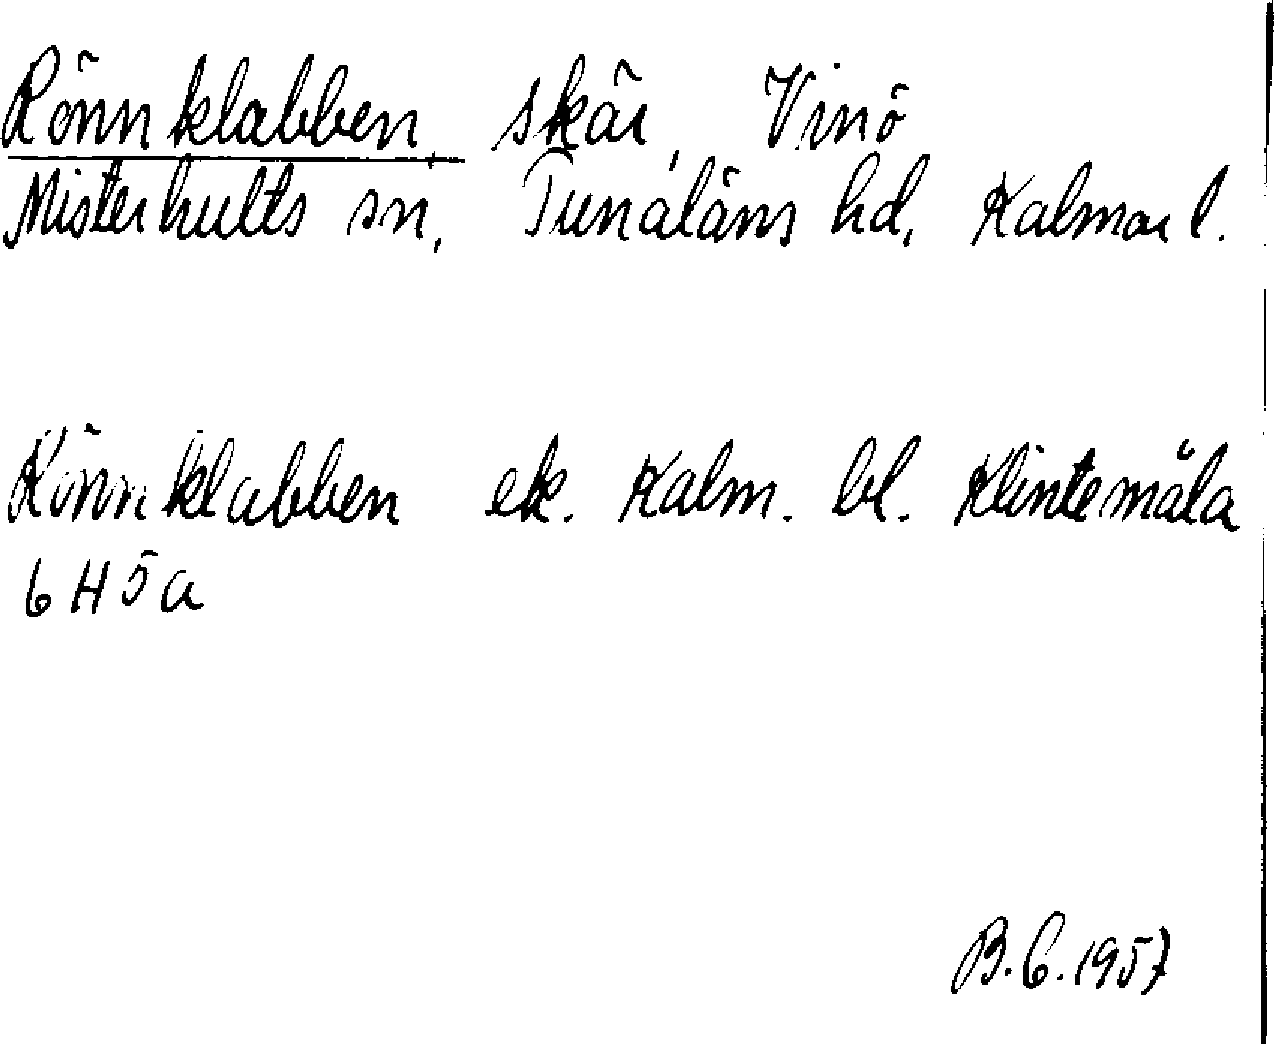 Rönnklabben, skär, Vinö
Misterhults sn, Tunaläns hd, Kalmar l.
Rönnklabben ek. Kalm. bl. Klintemåla
6 H 5 a
B.G. 1957